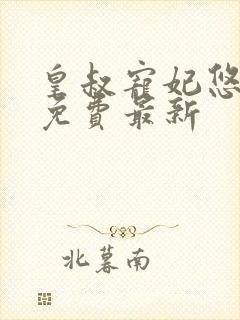 皇叔寵妃悠
免費最新
北暮南